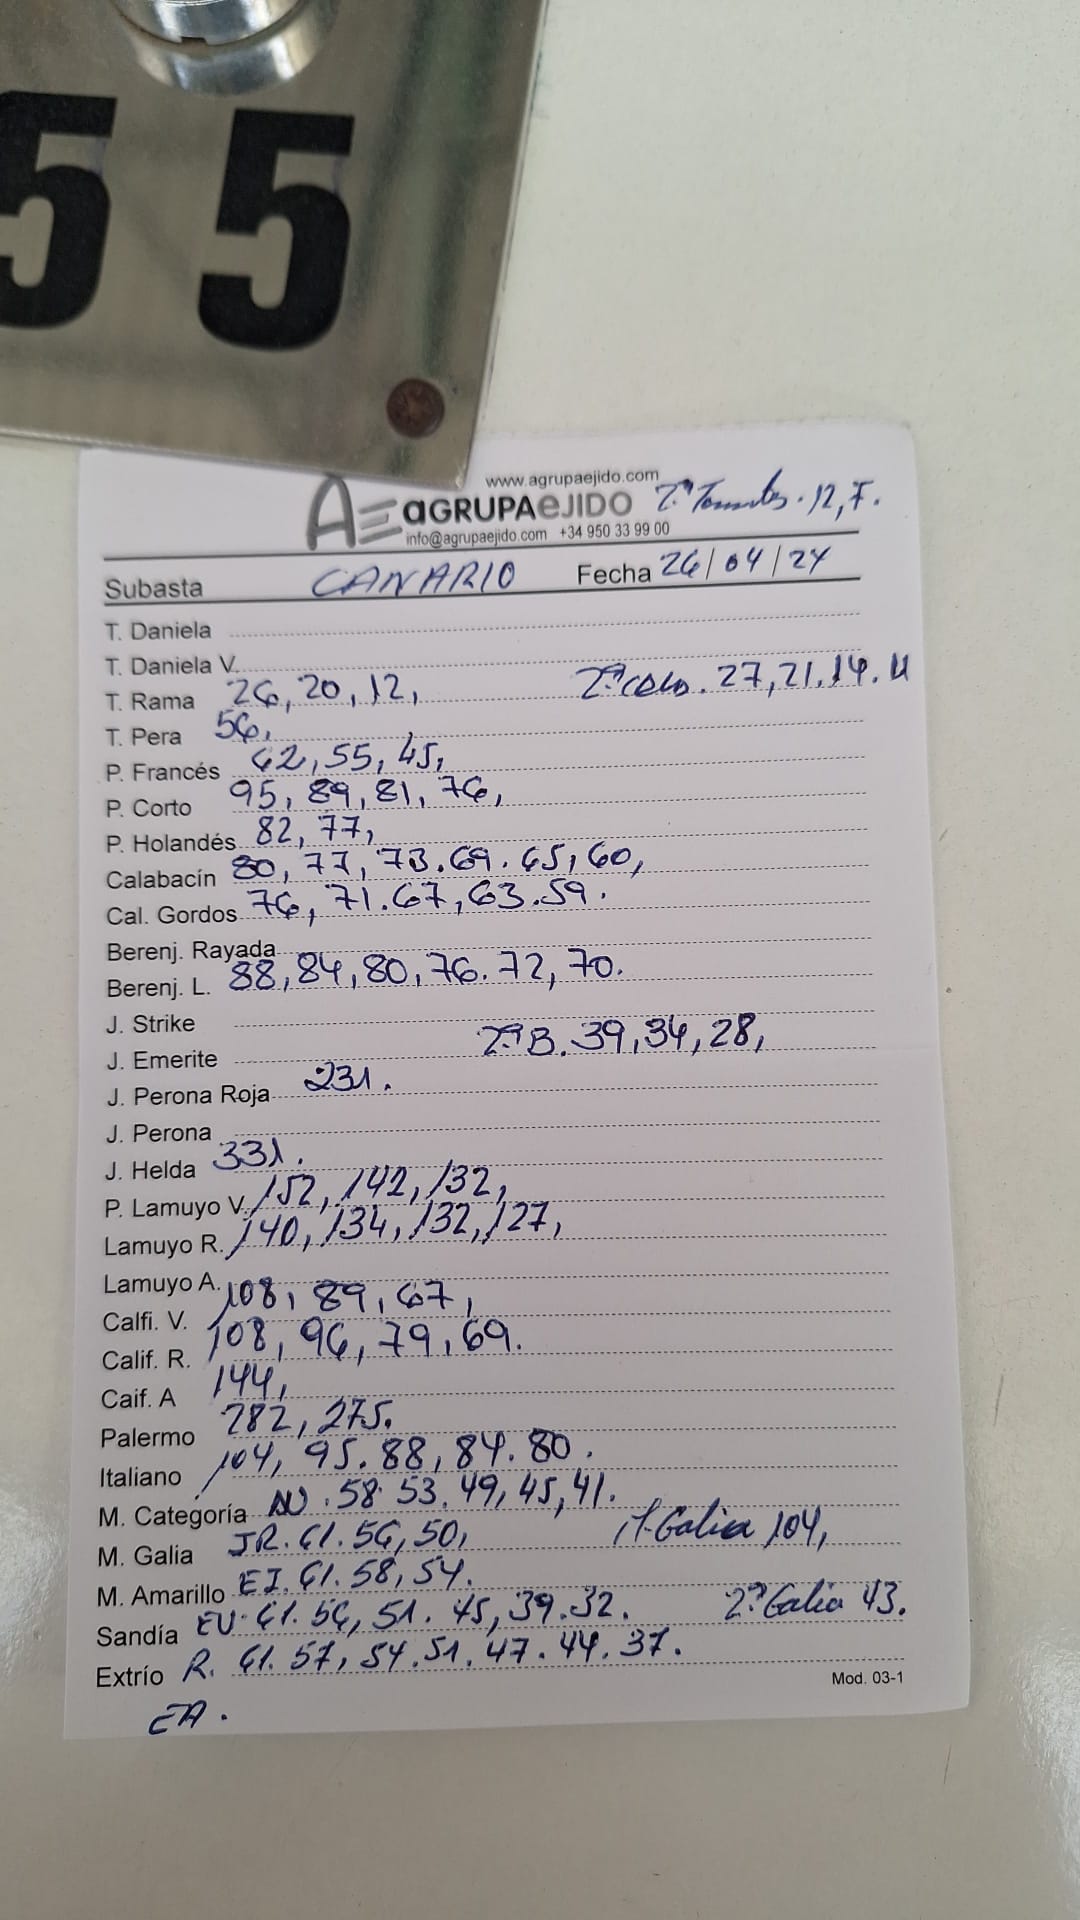 55
www.agrupaejido.com
AGRUPAEJIDO 2ª 12, 7.
info@agrupaejido.com +34 950 33 99 00
Subasta CANARIO Fecha 26/04/24
T. Daniela
T. Daniela V.
T. Rama 26, 20, 12, 2ª 27, 21, 14. 11
T. Pera 56,
P. Francés 62, 55, 45,
P. Corto 95, 89, 81, 76,
P. Holandés 82, 77,
Calabacín 80, 77, 73. 69. 65, 60,
Cal. Gordos 76, 71. 67, 63. 59.
Berenj. Rayada
Berenj. L. 88, 84, 80, 76. 72, 70.
J. Strike
J. Emerite 2ª B. 39, 34, 28,
J. Perona Roja 231.
J. Perona
J. Helda 331.
P. Lamuyo V. 152, 142, 132,
Lamuyo R. 140, 134, 132, 127,
Lamuyo A.
Calfi. V. 108, 89, 67,
Calif. R. 108, 96, 79, 69.
Caif. A 144,
Palermo 282, 275.
Italiano 104, 95. 88, 84. 80.
M. Categoría NU. 58 53. 49, 45, 41.
M. Galia JR. 61. 56, 50, Galia 104,
M. Amarillo EJ. 61. 58, 54.
Sandía EU. 61. 56, 51. 45, 39. 32. 2ª Galia 43.
Extrío R. 61. 57, 54. 51. 47. 44. 37.
Mod. 03-1
EA.